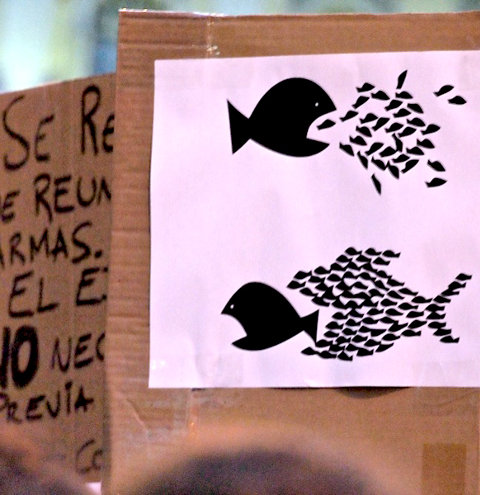 SE RE
DE REUN
ARMAS.
EL E
NO NEC
PREVIA
CO